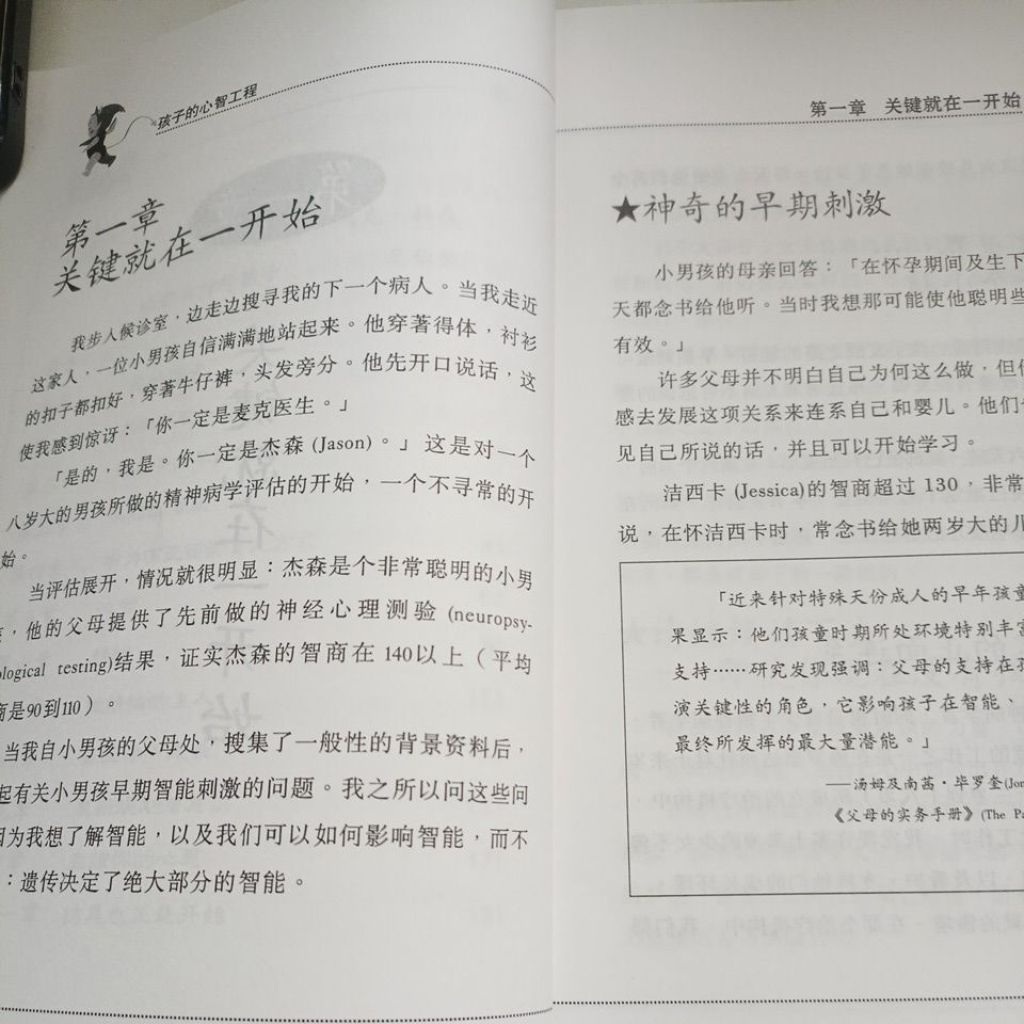 孩子的心智工程
第一章
关键就在一开始
我步入候诊室，边走边搜寻我的下一个病人。当我走近
这家人，一位小男孩自信满满地站起来。他穿著得体，衬衫
的扣子都扣好，穿著牛仔裤，头发旁分。他先开口说话，这
使我感到惊讶：「你一定是麦克医生。」
「是的，我是。你一定是杰森 (Jason)。」这是对一个
八岁大的男孩所做的精神病学评估的开始，一个不寻常的开
始。
当评估展开，情况就很明显：杰森是个非常聪明的小男
，他的父母提供了先前做的神经心理测验 (neuropsy-
ological testing)结果，证实杰森的智商在 140以上（平均
商是90到110）。
当我自小男孩的父母处，搜集了一般性的背景资料后，
起有关小男孩早期智能刺激的问题。我之所以问这些问
因为我想了解智能，以及我们可以如何影响智能，而不
：遗传决定了绝大部分的智能。
第一章 关键就在一开始
★神奇的早期刺激
小男孩的母亲回答：「在怀孕期间及生下
天都念书给他听。当时我想那可能使他聪明些
有效。」
许多父母并不明白自己为何这么做，但
感去发展这项关系来连系自己和婴儿。他们
见自己所说的话，并且可以开始学习。
洁西卡 (Jessica)的智商超过 130，非常
说，在怀洁西卡时，常念书给她两岁大的儿
「近来针对特殊天份成人的早年孩童
果显示：他们孩童时期所处环境特别丰富
支持……研究发现强调：父母的支持在孩
演关键性的角色，它影响孩子在智能、
最终所发挥的最大量潜能。」
——汤姆及南茜·毕罗奎(Jo
《父母的实务手册》(The Pa